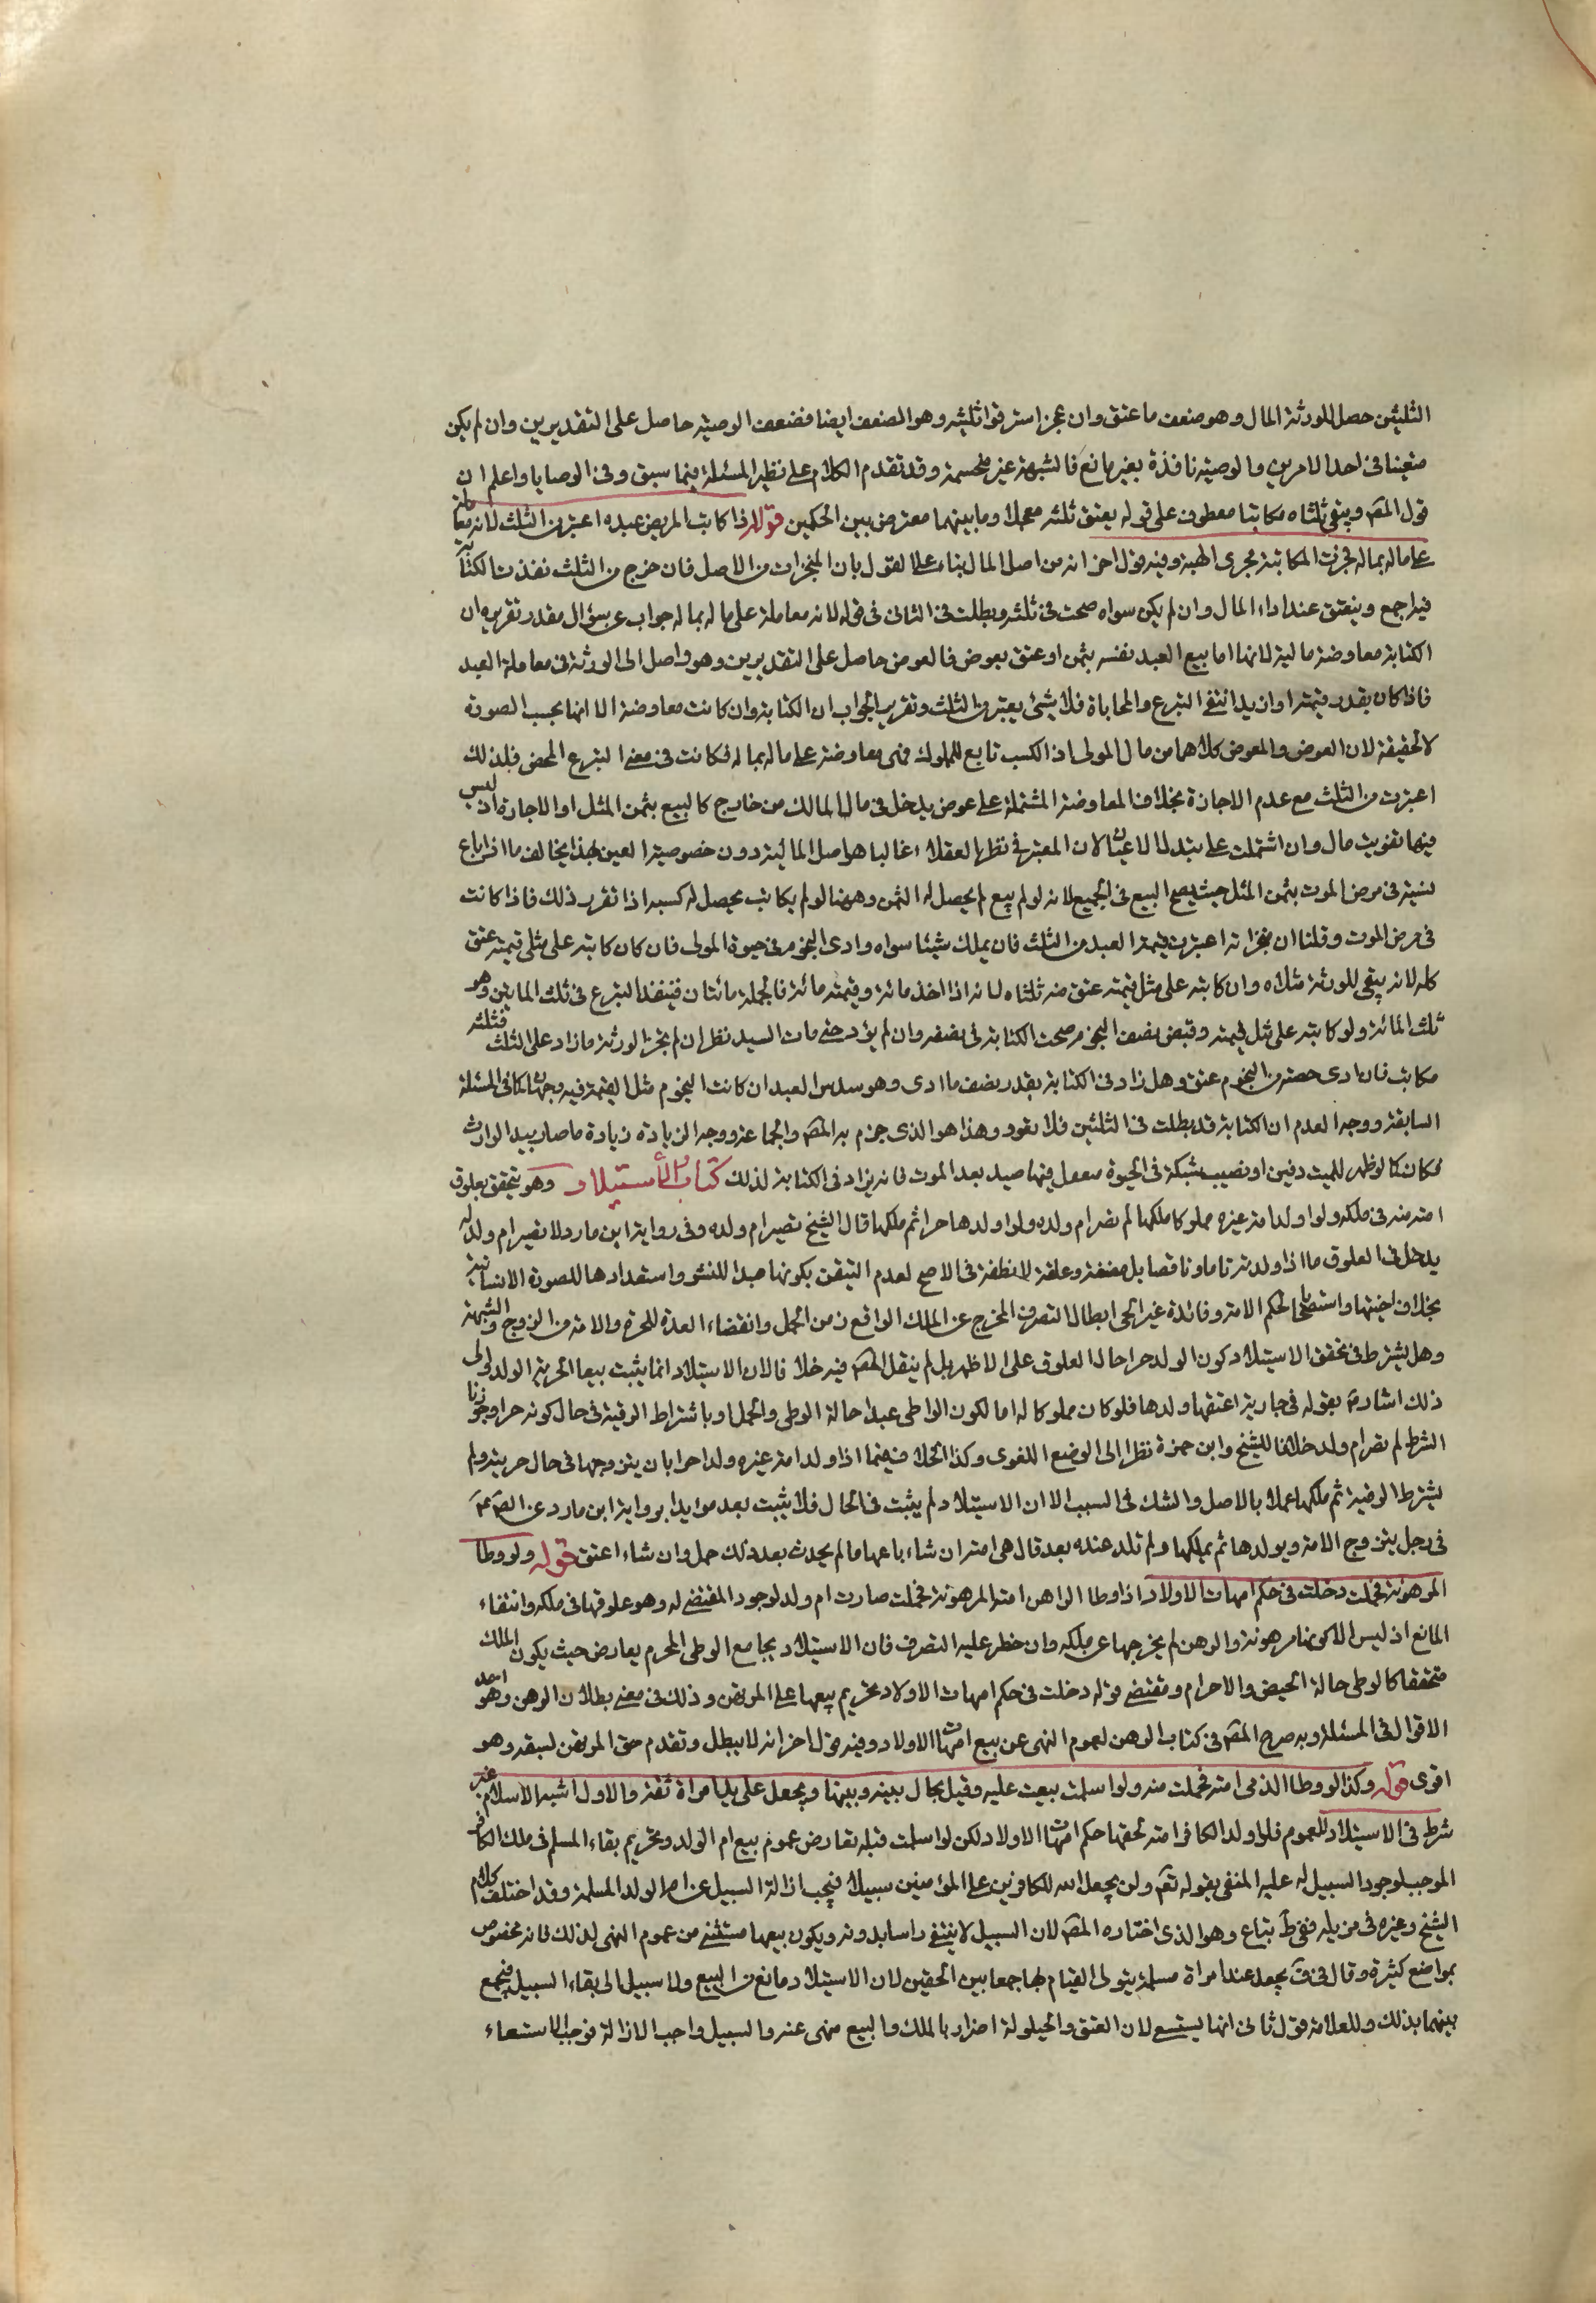 الثلثين حصل للورثة المال وهو ضعف ما عتق وان عجز استرقوا ثلثيه وهو الضعف ايضا فضعف الوصية حاصل على التقديرين وان لم يكن
متعينا في احد الامرين والوصية نافذة بغير مانع فالشبهة غير منحسمة وقد تقدم الكلام على نظير المسئلة فيما سبق وفي الوصايا واعلم ان
قول المص ويبقى ثلثاه مكاتبا معطوف على قوله يعتق ثلثه معجلا وما بينهما معترض بين الحكمين قوله اذا كاتب المريض عبده اعتبر من الثلث لانه معاملة
على ماله بماله فجرت المكاتبة مجرى الهبة وفيه قول اخر انه من اصل المال بناء على القول بان المنجزات من الاصل فان خرج من الثلث نفذت الكتابة
فيه اجمع وينعتق عند اداء المال وان لم يكن سواه صحت في ثلثه وبطلت في الثاني في قوله لانه معاملة على ماله بماله جواب عن سؤال مقدر تقريره ان
الكتابة معاوضة مالية لانها اما بيع العبد نفسه بثمن او عتق بعوض فالعوض حاصل على التقديرين وهو واصل الى الورثة في معاملة العبد
فاذا كان بقدر قيمته او ازيد انتفى التبرع والمحاباة فلا شيئ يعتبر من الثلث وتقريب الجواب ان الكتابة وان كانت معاوضة الا انها بحسب الصورة
لا الحقيقة لان العوض والمعوض كلاهما من مال المولى اذ الكسب تابع للمملوك فهي معاوضة على ماله بماله فكانت في معنى التبرع المحض فلذلك
اعتبرت من الثلث مع عدم الاجازة بخلاف المعاوضة المشتملة على عوض يدخل في مال المالك من خارج كالبيع بثمن المثل او الاجارة اذ ليس
فيها تفويت مال وان اشتملت على تبدل الاعيان لان المعتبر في نظر العقلاء غالبا هو اصل المالية دون خصوصية العين بهذا يخالف ما اذا باع
نسية في مرض الموت بثمن المثل حيث يصح البيع في الجميع لانه لو لم يبع لم يحصل له الثمن وههنا لو لم يكاتب يحصل له كسبه اذا تقرر ذلك فاذا كانت
في مرض الموت وقلنا ان منجزاته اعتبرت قيمة العبد من الثلث فان يملك شيئا سواه وادى النجوم في حيوة المولى فان كان كاتبه على مثلي قيمته عتق
كله لانه يبقى للورثة مثلاه وان كاتبه على مثل قيمته عتق منه ثلثاه لانه اذا اخذ مائة وقيمته مائة فالجملة مائتان فينفذ التبرع في ثلث المائتين وهو
ثلث المائة ولو كاتبه على مثل قيمته وقبض نصف النجوم صحت الكتابة في نصفه وان لم يؤد حتى مات السيد نظر ان لم يجز الورثة ما زاد على الثلث فثلثه
مكاتب فان ادى حصته من النجوم عتق وهل زاد في الكتابة بقدر نصف ما ادى وهو سدس العبد ان كانت النجوم مثل القيمة فيه وجهان كما في المسئلة
السابقة ووجه العدم ان الكتابة قد بطلت في الثلثين فلا يعود وهذا هو الذي جزم به المص والجماعة ووجه الزيادة زيادة ما صار بيد الوارث
فكان كما لو ظهر للميت دفين او نصب شبكة في الحيوة فعقل فيها صيد بعد الموت فانه يزاد في الكتابة لذلك كتاب الاستيلاد وهو يتحقق بعلوق
امته منه في ملكه ولو اولد امة غيره مملوكا ثم ملكها لم تصر ام ولده ولو اولدها حرا ثم ملكها قال الشيخ تصير ام ولده وفي رواية ابن مارد لا تصير ام ولد له
يدخل في العلوق ما اذا ولدته تاما وناقصا بل مضغة وعلقة لا نطفة في الاصح لعدم التيقن بكونها مبدا للنشو واستعدادها للصورة الانسانية
بخلاف اختيها واستصحابا لحكم الامة وفائدة غير الحي ابطال التصرف المخرج عن الملك الواقع زمن الحمل وانقضاء العدة للحرة والامة من الزوج والشبهة
وهل يشترط في تحقق الاستيلاد كون الولد حرا حال العلوق على الاظهر بل لم ينقل المص فيه خلافا لان الاستيلاد انما يثبت تبعا لحرية الولد والى
ذلك اشار بقوله في جارية اعتقها ولدها فلو كان مملوكا له اما لكون الواطي عبدا حالة الوطي والحمل او باشتراط الرقية في حال كونه حرا وجوزنا
الشرط لم تصر ام ولد خلافا للشيخ وابن حمزة نظرا الى الوضع اللغوي وكذا الخلاف فيما اذا ولد امة غيره ولدا حرا بان يتزوجها في حال حريته ولم
يشترط الرقية ثم ملكها عملا بالاصل والشك في السبب الا ان الاستيلاد لم يثبت في الحال فلا يثبت بعد مؤيدا برواية ابن مارد عن الص عم
في رجل يتزوج الامة ويولدها ثم يملكها ولم تلد عنده بعد قال هي امته ان شاء باعها ما لم يحدث بعد ذلك حمل وان شاء اعتق قوله ولو وطا
المرهونة فحملت دخلت في حكم امهات الاولاد اذا وطا الراهن امته المرهونة فحملت صارت ام ولد لوجود المقتضى له وهو علوقها في ملكه وانتفاء
المانع اذ ليس الا كونها مرهونة والرهن لم يخرجها عن ملكه وان حظر عليه التصرف فان الاستيلاد يجامع الوطي المحرم بعارض حيث يكون الملك
متحققا كالوطي حالة الحيض والاحرام ومقتضى قوله دخلت في حكم امهات الاولاد تحريم بيعها على المرتهن وذلك في معنى بطلان الرهن وهو احد
الاقوال في المسئلة وبه صرح المص في كتاب الرهن لعموم النهي عن بيع امهات الاولاد وفيه قول اخر انه لا يبطل وتقدم حق المرتهن لسبقه وهو
اقوى قوله وكذا لو وطا الذمي امته فحملت منه ولو اسلمت بيعت عليه وقيل يحال بينه وبينها ويجعل على يد امراة ثقة والاول اشبه الاسلام غير
شرط في الاستيلاد للعموم فلو اولد الكافر امته لحقها حكم امهات الاولاد لكن لو اسلمت قبله تعارض عموم بيع ام الولد وتحريم بقاء المسلم في ملك الكافر
الموجب لوجود السبيل له عليه المنفي بقوله تعم ولن يجعل الله للكافرين على المؤمنين سبيلا فيجب ازالة السبيل عن ام الولد المسلمة وقد اختلف كلام
الشيخ وغيره في مزيله ففي ط تباع وهو الذي اختاره المص لان السبيل لا ينتفي راسا بدونه ويكون بيعها مستثنى من عموم النهي لذلك فانه مخصوص
بمواضع كثيرة وقال في ف يجعل عند امراة مسلمة يتولى القيام بها جمعا بين الحقين لان الاستيلاد مانع من البيع ولا سبيل الى بقاء السبيل فيجمع
بينهما بذلك وللعلامة قول ثالث انها تستسعى لان العتق والحيلولة اضرار بالملك والبيع منهى عنه والسبيل واجب الازالة فوجب الاستسعاء